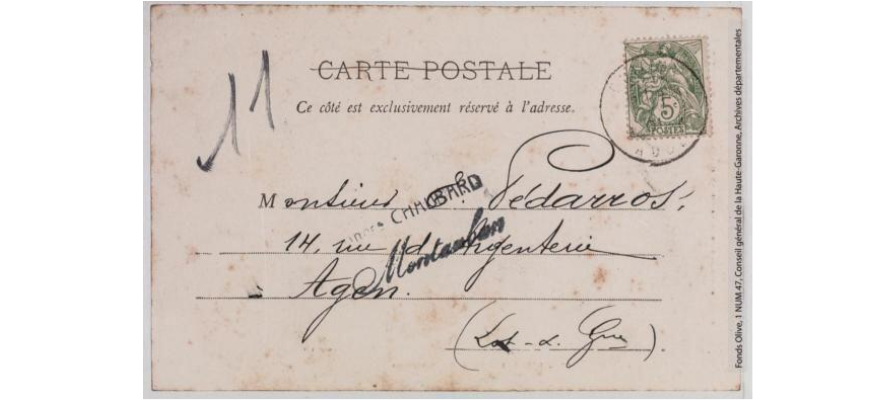 11
CARTE POSTALE
Ce côté est exclusivement réservé à l'adresse.
5
POSTES
Monsieur Pédarros,
CHAUBARD
14, rue d'Argenterie
Montauban
à Agen.
(Lot-&-Gne).
Fonds Olive, 1 NUM 47, Conseil général de la Haute-Garonne, Archives départementales